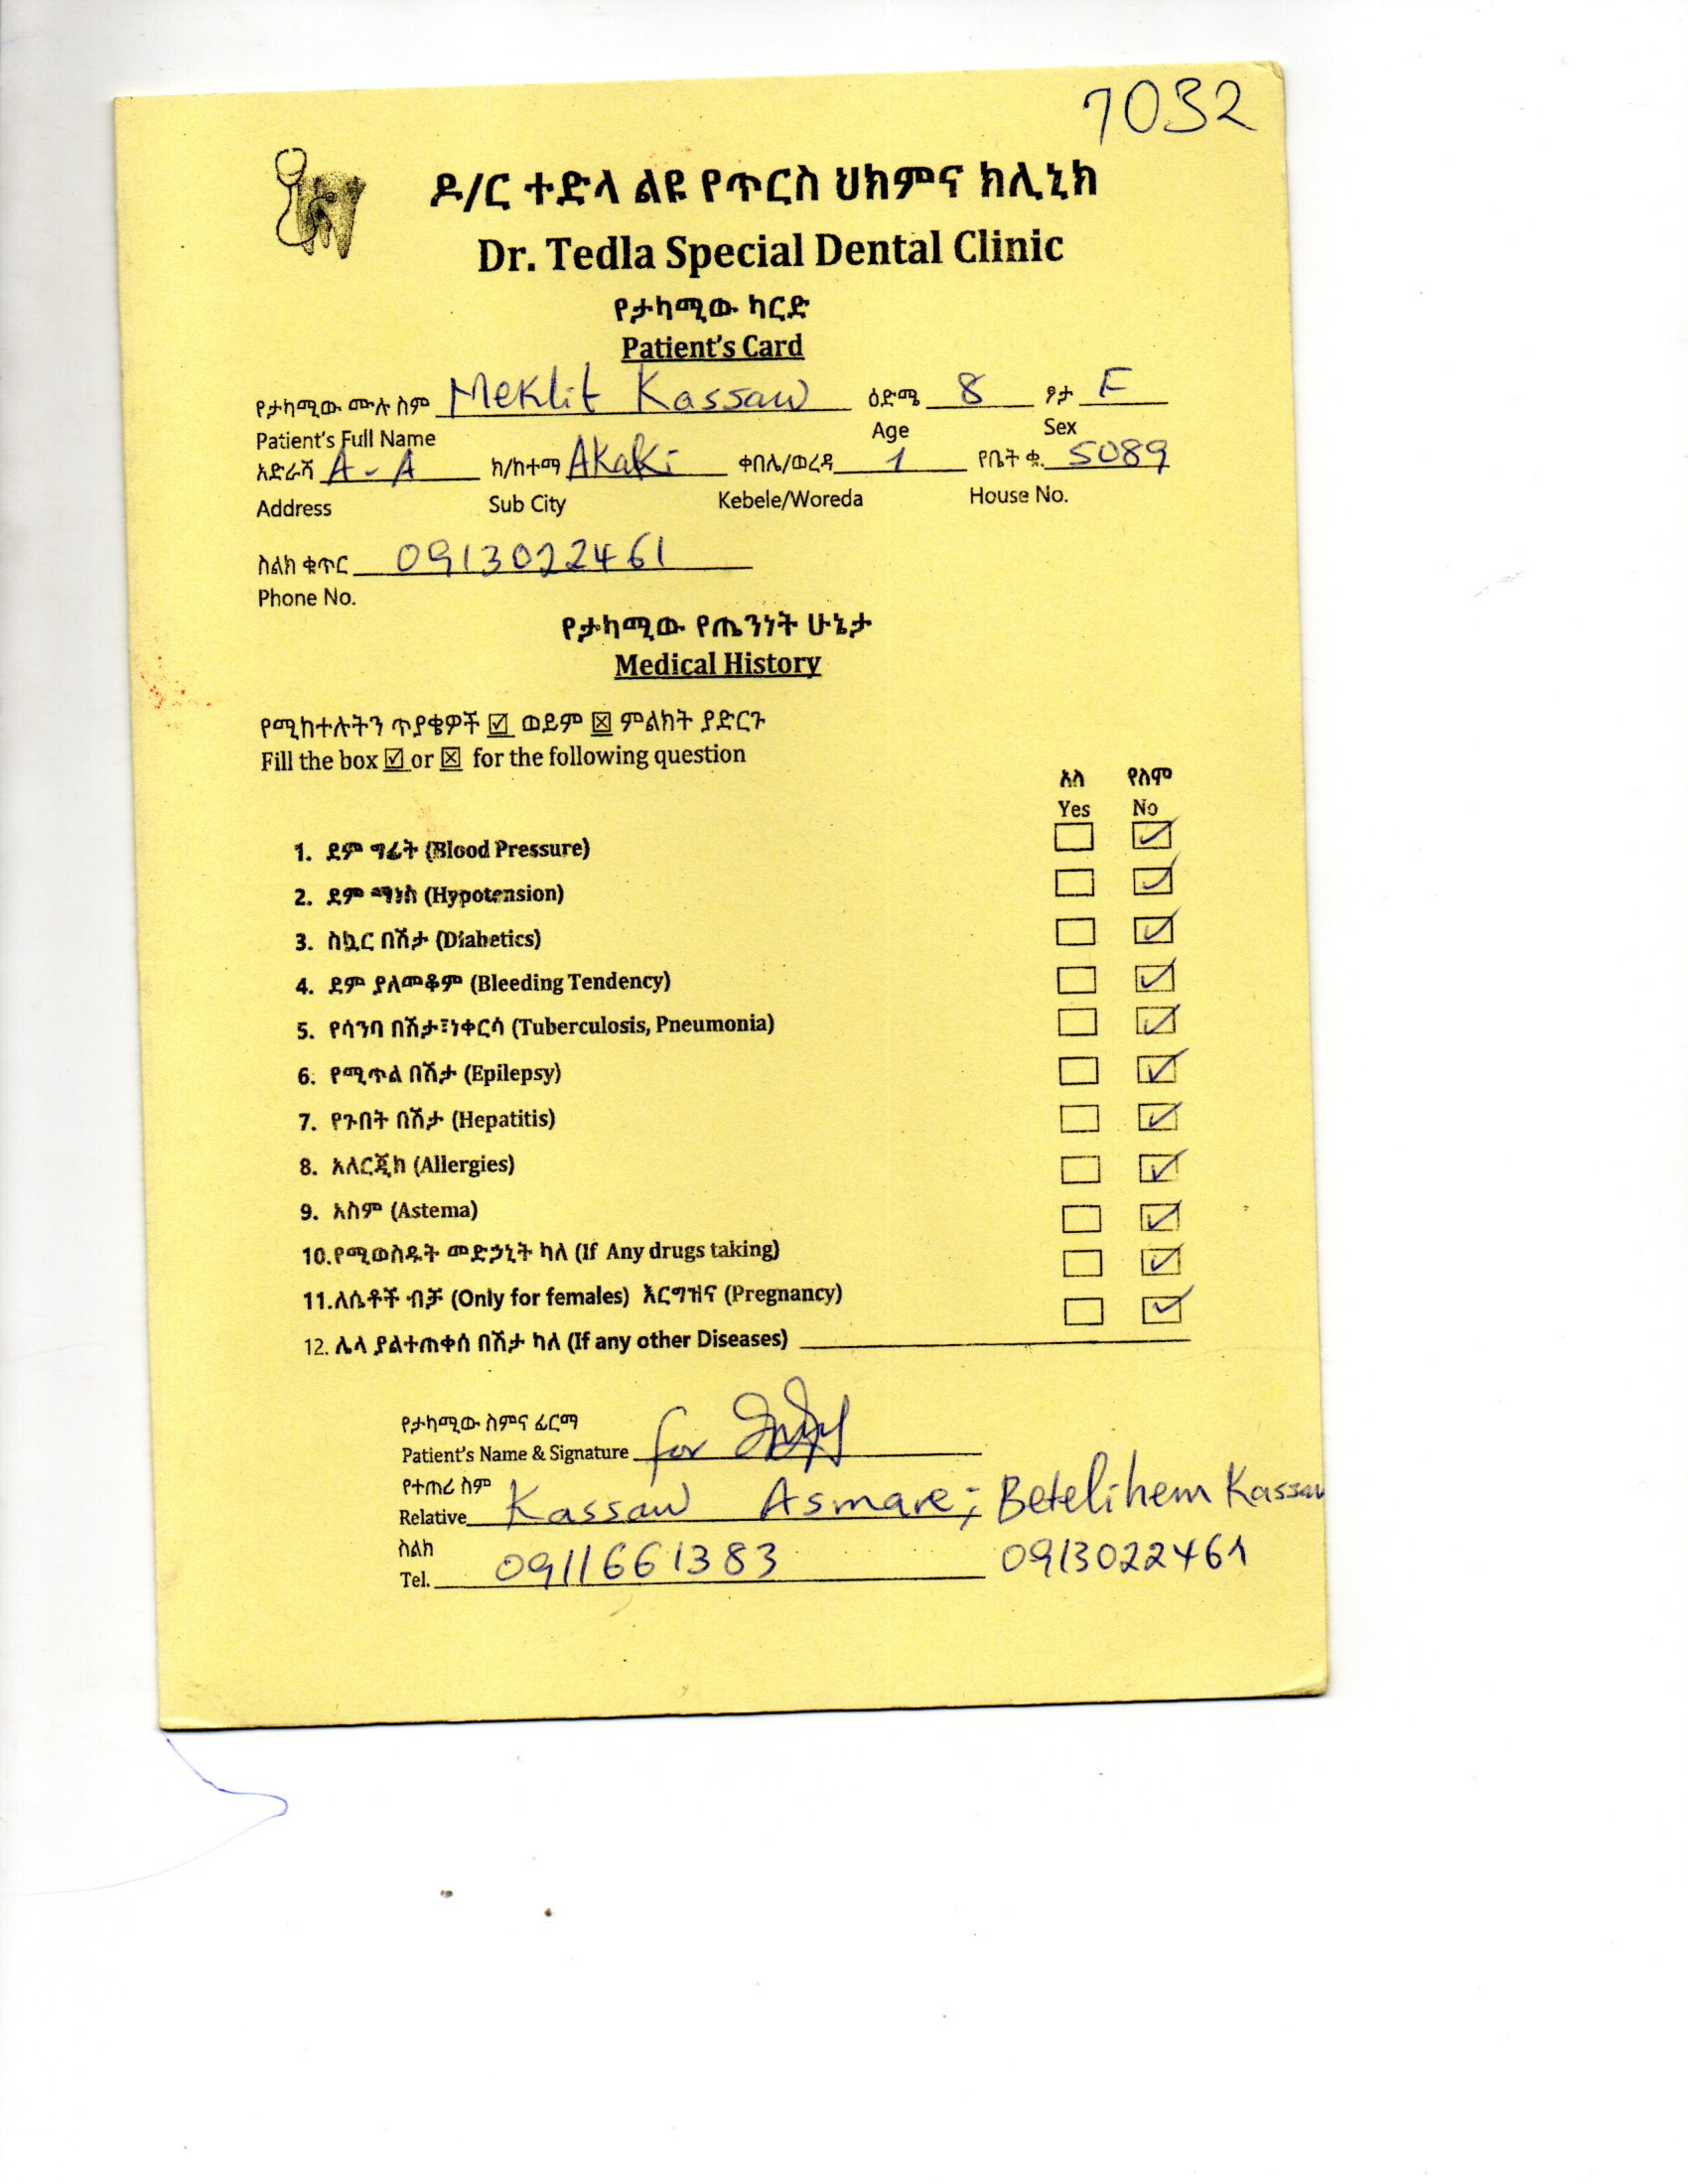 7032
ዶ/ር ተድላ ልዩ የጥርስ ህክምና ክሊኒክ
Dr. Tedla Special Dental Clinic
የታካሚው ካርድ
Patient's Card
የታካሚው ሙሉ ስም Meklit Kassaw ዕድሜ 8 ፆታ F
Patient's Full Name Age Sex
አድራሻ A-A ክ/ከተማ Akaki ቀበሌ/ወረዳ 1 የቤት ቁ. 5089
Address Sub City Kebele/Woreda House No.
ስልክ ቁጥር 0913022461
Phone No.
የታካሚው የጤንነት ሁኔታ
Medical History
የሚከተሉትን ጥያቄዎች ☑ ወይም ☒ ምልክት ያድርጉ
Fill the box ☑ or ☒ for the following question
አለ የለም
Yes No
1. ደም ግፊት (Blood Pressure) ☐ ☑
2. ደም ማነስ (Hypotension) ☐ ☑
3. ስኳር በሽታ (Diabetics) ☐ ☑
4. ደም ያለመቆም (Bleeding Tendency) ☐ ☑
5. የሳንባ በሽታ፣ነቀርሳ (Tuberculosis, Pneumonia) ☐ ☑
6. የሚጥል በሽታ (Epilepsy) ☐ ☑
7. የጉበት በሽታ (Hepatitis) ☐ ☑
8. አለርጂክ (Allergies) ☐ ☑
9. አስም (Astema) ☐ ☑
10.የሚወስዱት መድኃኒት ካለ (If Any drugs taking) ☐ ☑
11.ለሴቶች ብቻ (Only for females) እርግዝና (Pregnancy) ☐ ☑
12. ሌላ ያልተጠቀሰ በሽታ ካለ (If any other Diseases)
የታካሚው ስምና ፊርማ
Patient's Name & Signature for
የተጠሪ ስም
Relative Kassaw Asmare; Betelihem Kassaw
ስልክ
Tel. 0911661383 0913022461